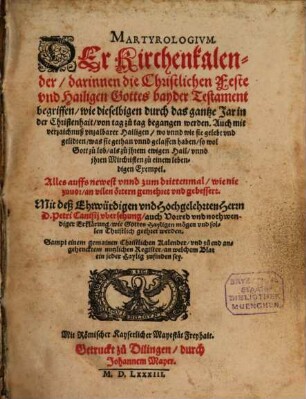 MARTYROLOGIVM.
DEr Kirchenkalen-
der / darinnen die Christlichen Feste
vnd Hailigen Gottes bayder Testament
begriffen / wie dieselbigen durch das gantze Jar in
der Christenhait / von tag zů tag begangen werden. Auch mit
verzaichnuß vnzalbarer Hailigen / wo vnnd wie sie gelebt vnd
gelidten / was sie gethan vnnd gelassen haben / so wol
Gott zů lob / als zů jhem ewigen Hail / vnnd
jhren Mitchristen zů einem leben-
digen Exempel.
Alles auffs newest vnnd zum drittenmal / wie nie
zuuor / an vilen örtern gemehret vnd gebessert.
Mit deß Ehrwürdigen vnd Hochgelehrten Herrn
D. Petri Canisij vbersehung / auch Vorred vnd nothwen-
diger Erklärung / wie Gottes Hayligen mögen vnd sol-
len Christlich geehret werden.
Sampt einem gemainen Christlichen Kalender / vnd zů end an-
gehencktem nutzlichen Register / an welchem Blat
ein jeder Haylig zufinden sey.
Mit Römischer Kayserlicher Mayestät Freyhait.
Getruckt zů Dilingen / durch
Johannem Mayer.
M. D. LXXXIII.
BIBLIOTHECA